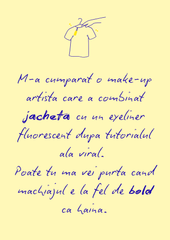 M-a cumparat o make-up
artista care a combinat
jacheta cu un eyeliner
fluorescent dupa tutorialul
ala viral.
Poate tu ma vei purta cand
machiajul e la fel de bold
ca haina.